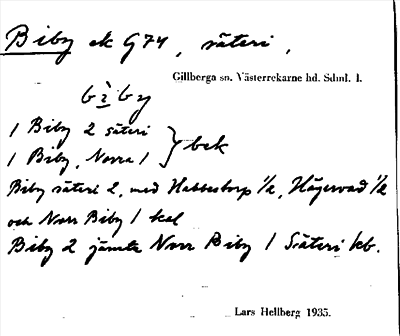 Biby ek G74, säteri,
Gillberga sn. Västerrekarne hd. Sdml. l.
bìby
1 Biby 2 säteri
1 Biby, Norra 1 } bek
Biby säteri 2, med Habbestorp 1/2, Hägervad 1/2
och Norr Biby 1 kal
Biby 2 jämte Norr Biby 1 Säteri kb.
Lars Hellberg 1935.